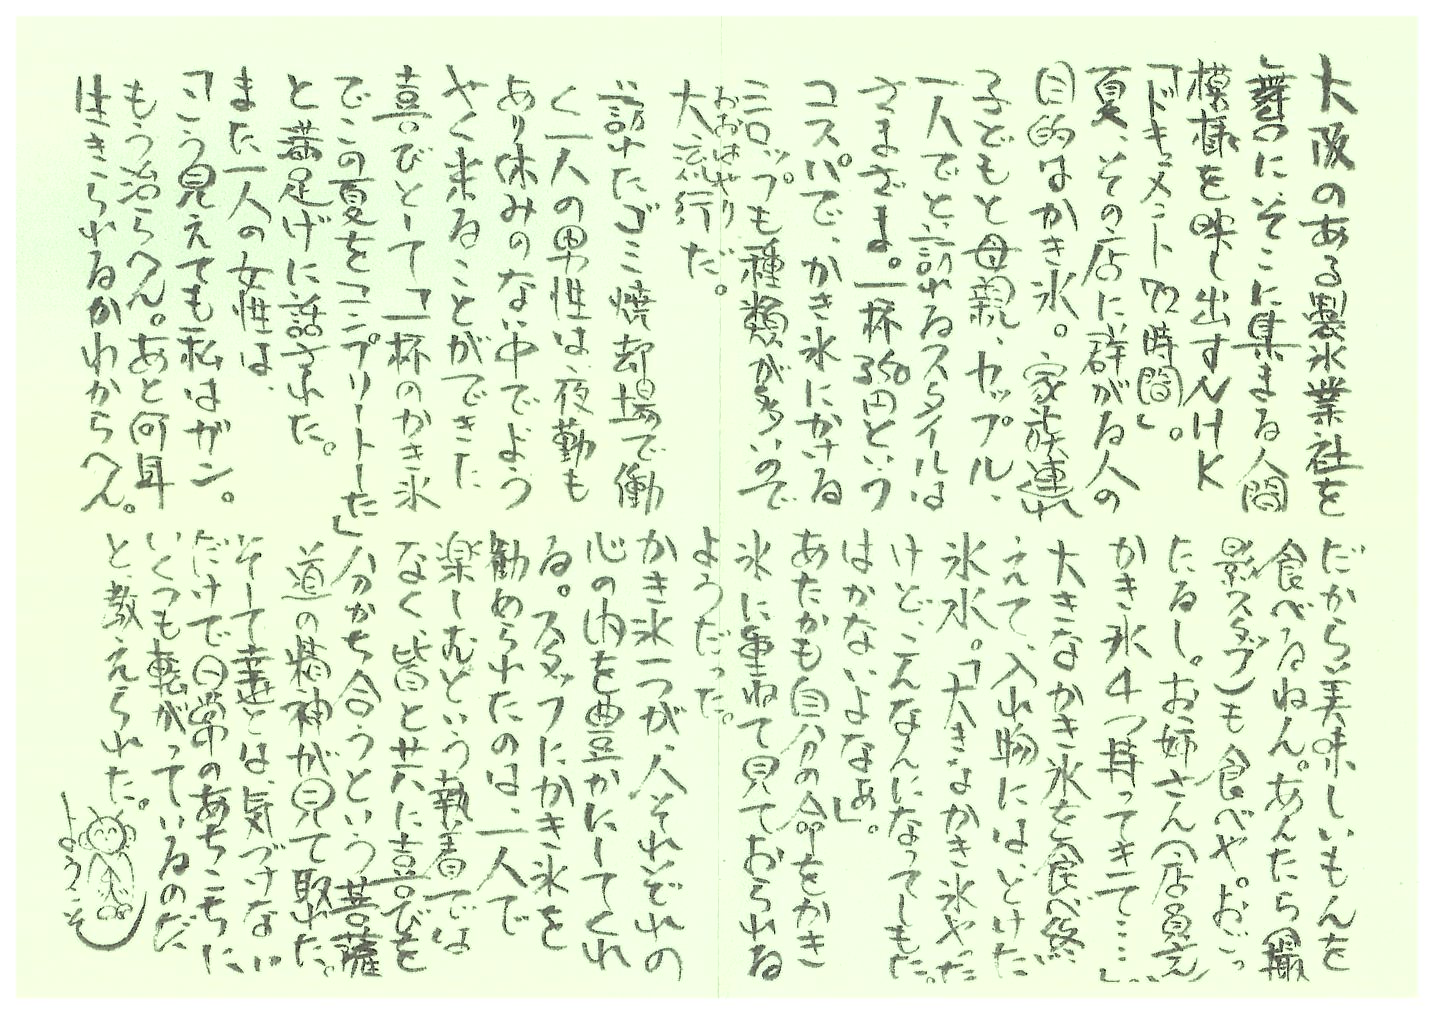 大阪のある製氷業社を
舞台にそこに集まる人間
模様を映し出すNHK
「ドキュメント72時間」。
夏、その店に群がる人の
目的はかき氷。家族連れ
子どもと母親、カップル、
一人でと訪れるスタイルは
さまざま。一杯350円という
コスパで、かき氷にかける
シロップも種類が多いので
おおはやり
大流行だ。
訪れたゴミ焼却場で働
く一人の男性は、夜勤も
あり休みのない中でよう
やく来ることができた
喜びとして「一杯のかき氷
でこの夏をコンプリートした」
と満足げに話された。
また一人の女性は、
「こう見えても私はガン。
もう治らへん。あと何年
生きられるかわからへん。
だから美味しいもんを
食べるねん。あんたら(撮
影スタッフ)も食べや。おごっ
たるし。お姉さん(店員)
かき氷4つ持ってきて…」
大きなかき氷を食べ終
えて、入れ物にはとけた
氷水。「大きなかき氷やった
けど、こんなんになってしもた。
はかないよなぁ」。
あたかも自分の命をかき
氷に重ねて見ておられる
ようだった。
かき氷一つが、人それぞれの
心の内を豊かにしてくれ
る。スタッフにかき氷を
勧められたのは、一人で
楽しむという執着では
なく、皆と共に喜びを
分かち合うという菩薩
道の精神が見て取れた。
そして幸せとは、気づけない
だけで日常のあちこちに
いくつも転がっているのだ
と、教えられた。
ようこそ